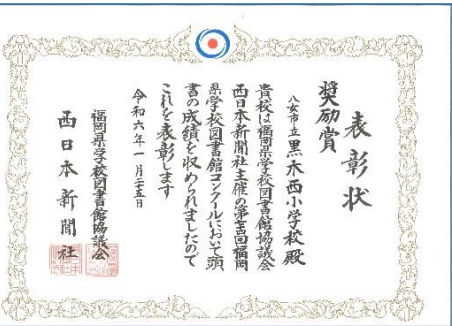 表彰状
奨励賞
八女市立黒木西小学校殿
貴校は福岡県学校図書館協議会
西日本新聞社主催の第回福岡
県学校図書館コンクールにおいて頭
書の成績を収められましたので
これを表彰します
令和六年一月二十五日
福岡県学校図書館協議会
西日本新聞社